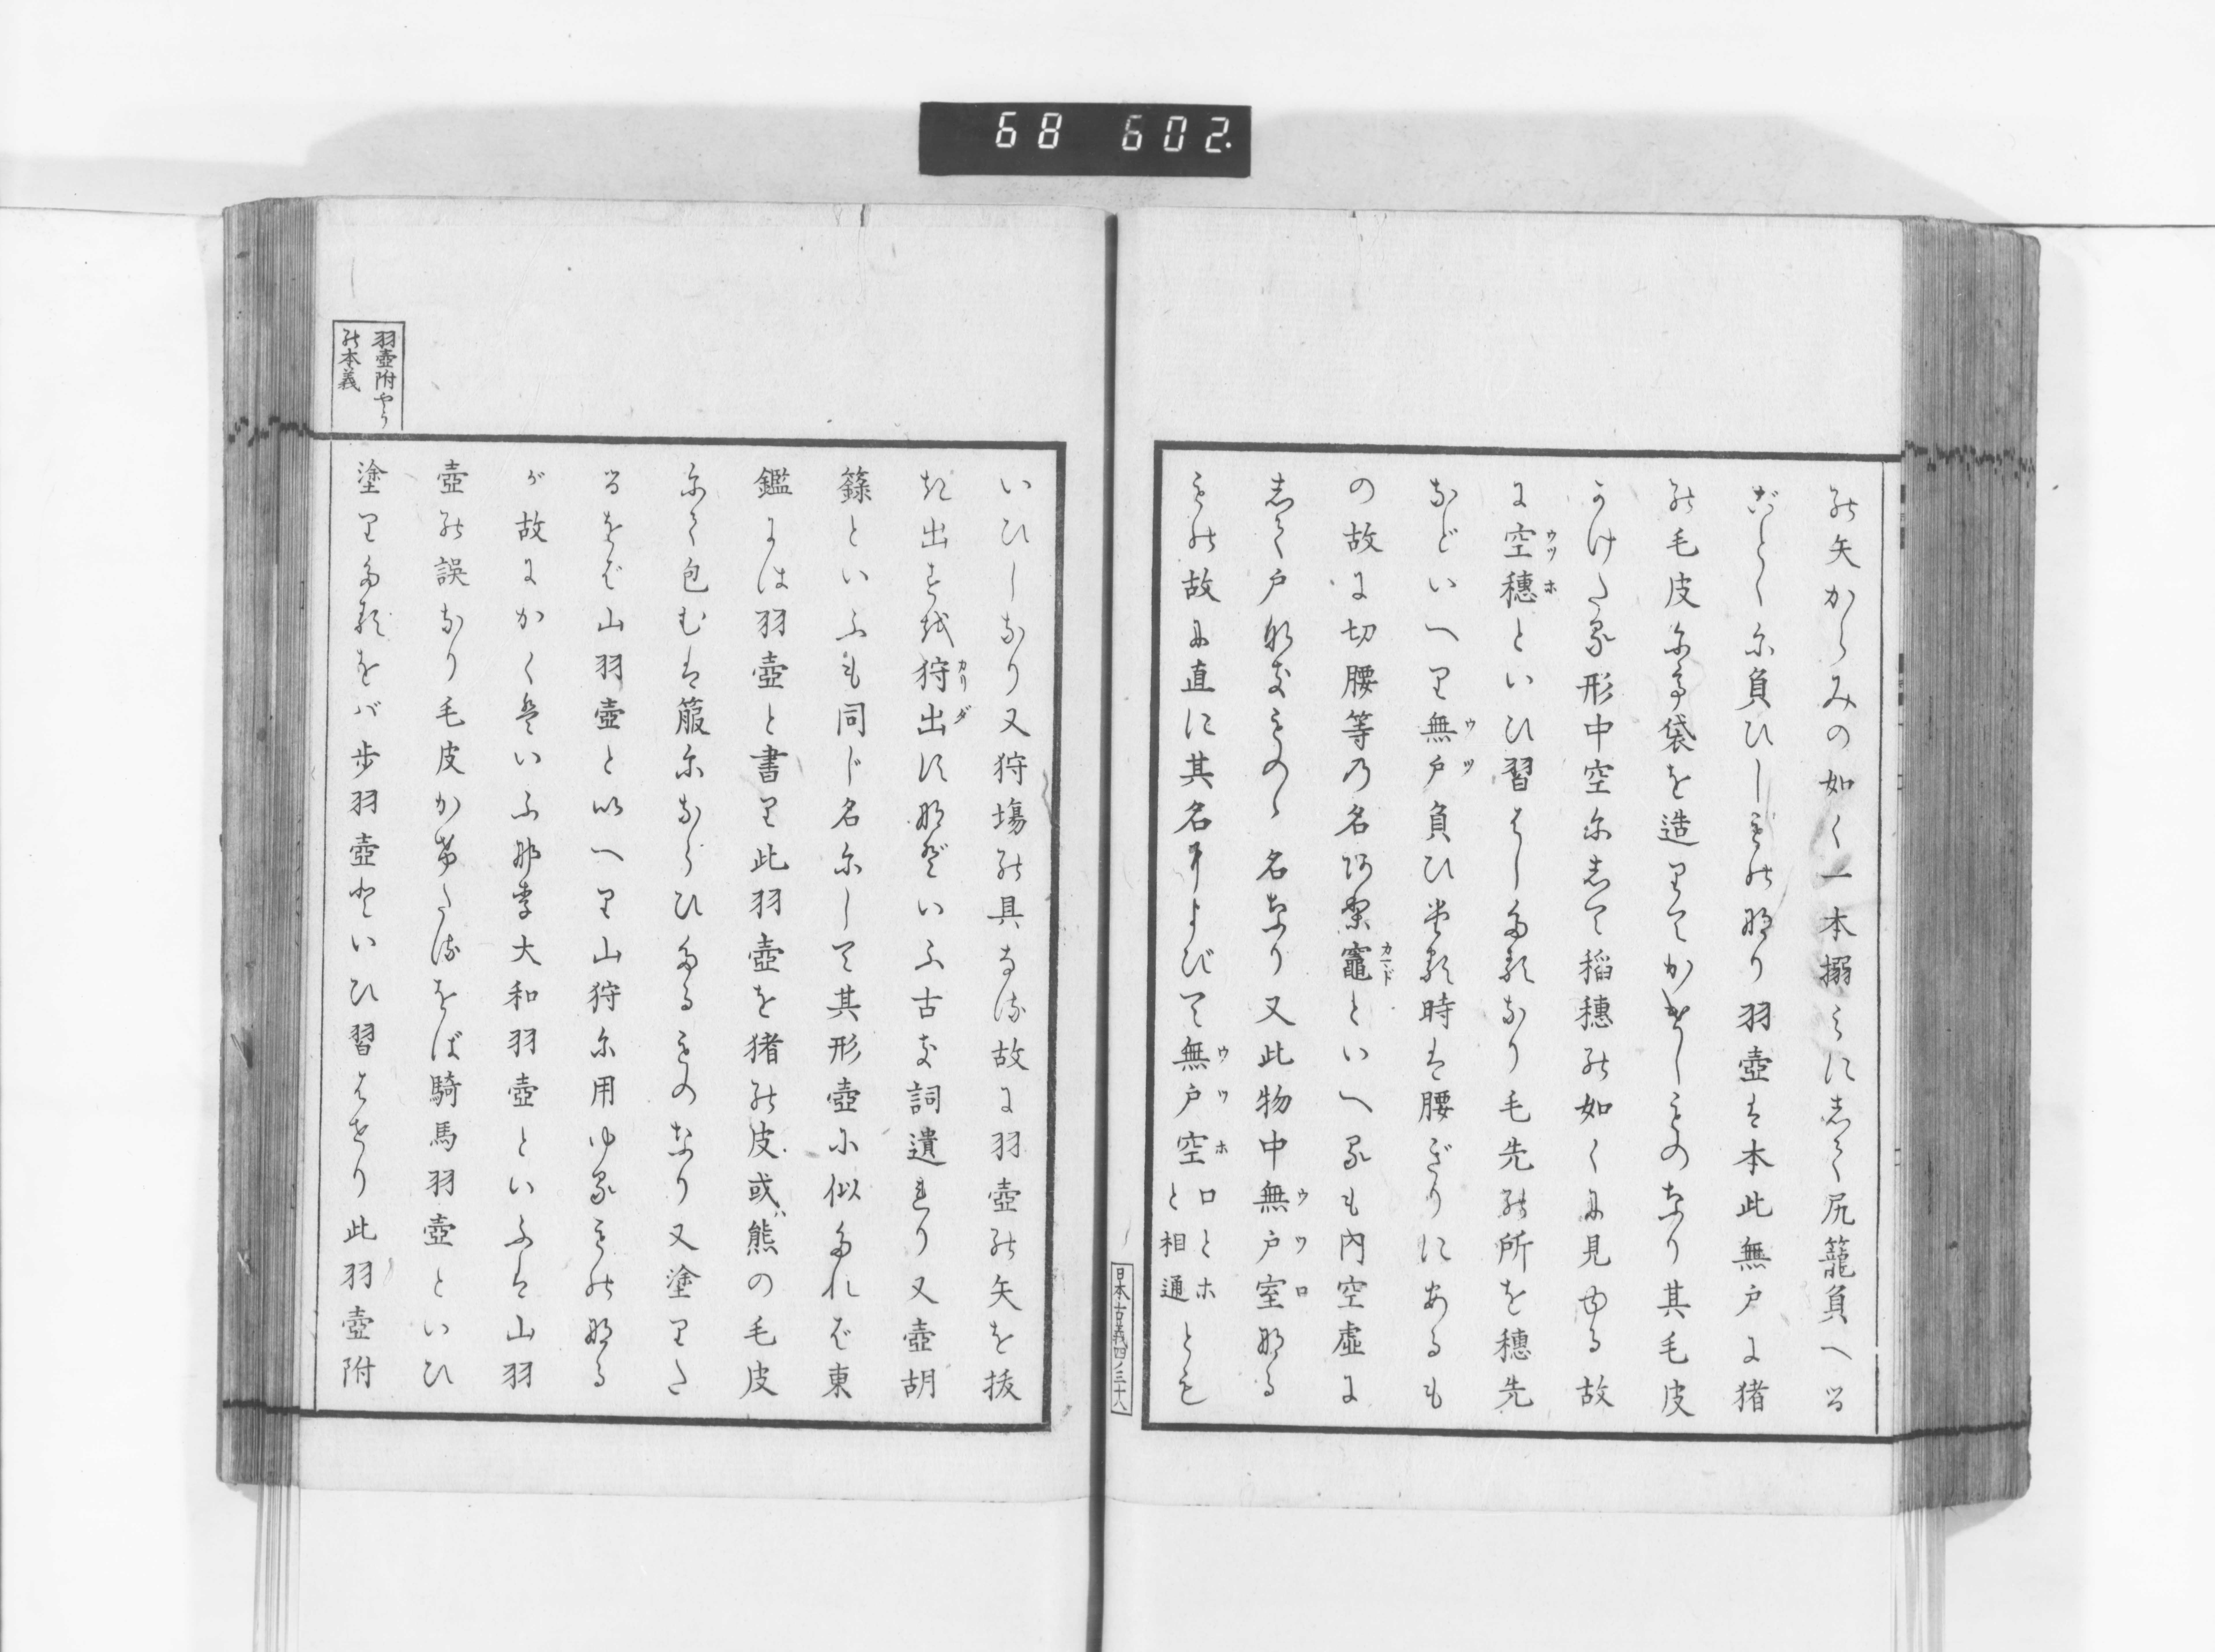 68 602.
能矢からみの如く一本搦ミにして尻籠負へる
ごとく尓負ひしもの那り羽壺は本此無戸に猪
能毛皮尓弖袋を造りてかけしものなり其毛皮
うけたる形中空尓して稲穂能如く尓見ゆる故
に空穂といひ習はしたるなり毛先能所を穂先
ウツ ホ
などいへり無戸負ひたる時は腰ざりにあるも
ウツ
の故に切腰等乃名阿り竈といへるも内空虚に
カマド
して戸那きものゝ名なり又此物中無戸室那る
ウツロ
もの故尓直に其名によびて無戸空
ウツ ホ
ロとホ
と相通
とも
日本古義四ノ三十八
いひしなり又狩塲能具なる故に羽壺能矢を抜
き出すを狩出しなどいふ古き詞遺れり又壺胡
カリダ
籙といふも同じ名尓して其形壺に似たれば東
鑑には羽壺と書り此羽壺を猪能皮或ハ熊の毛皮
尓て包むは箙尓ならひたるものなり又塗りた
るをば山羽壺と以へり山狩尓用ゆるもの那る
が故にかくはいふ那李大和羽壺といふは山羽
壺能誤なり毛皮かけたるをば騎馬羽壺といひ
塗りたるをバ歩羽壺といひ習はせり此羽壺附
羽壺附やう
能本義